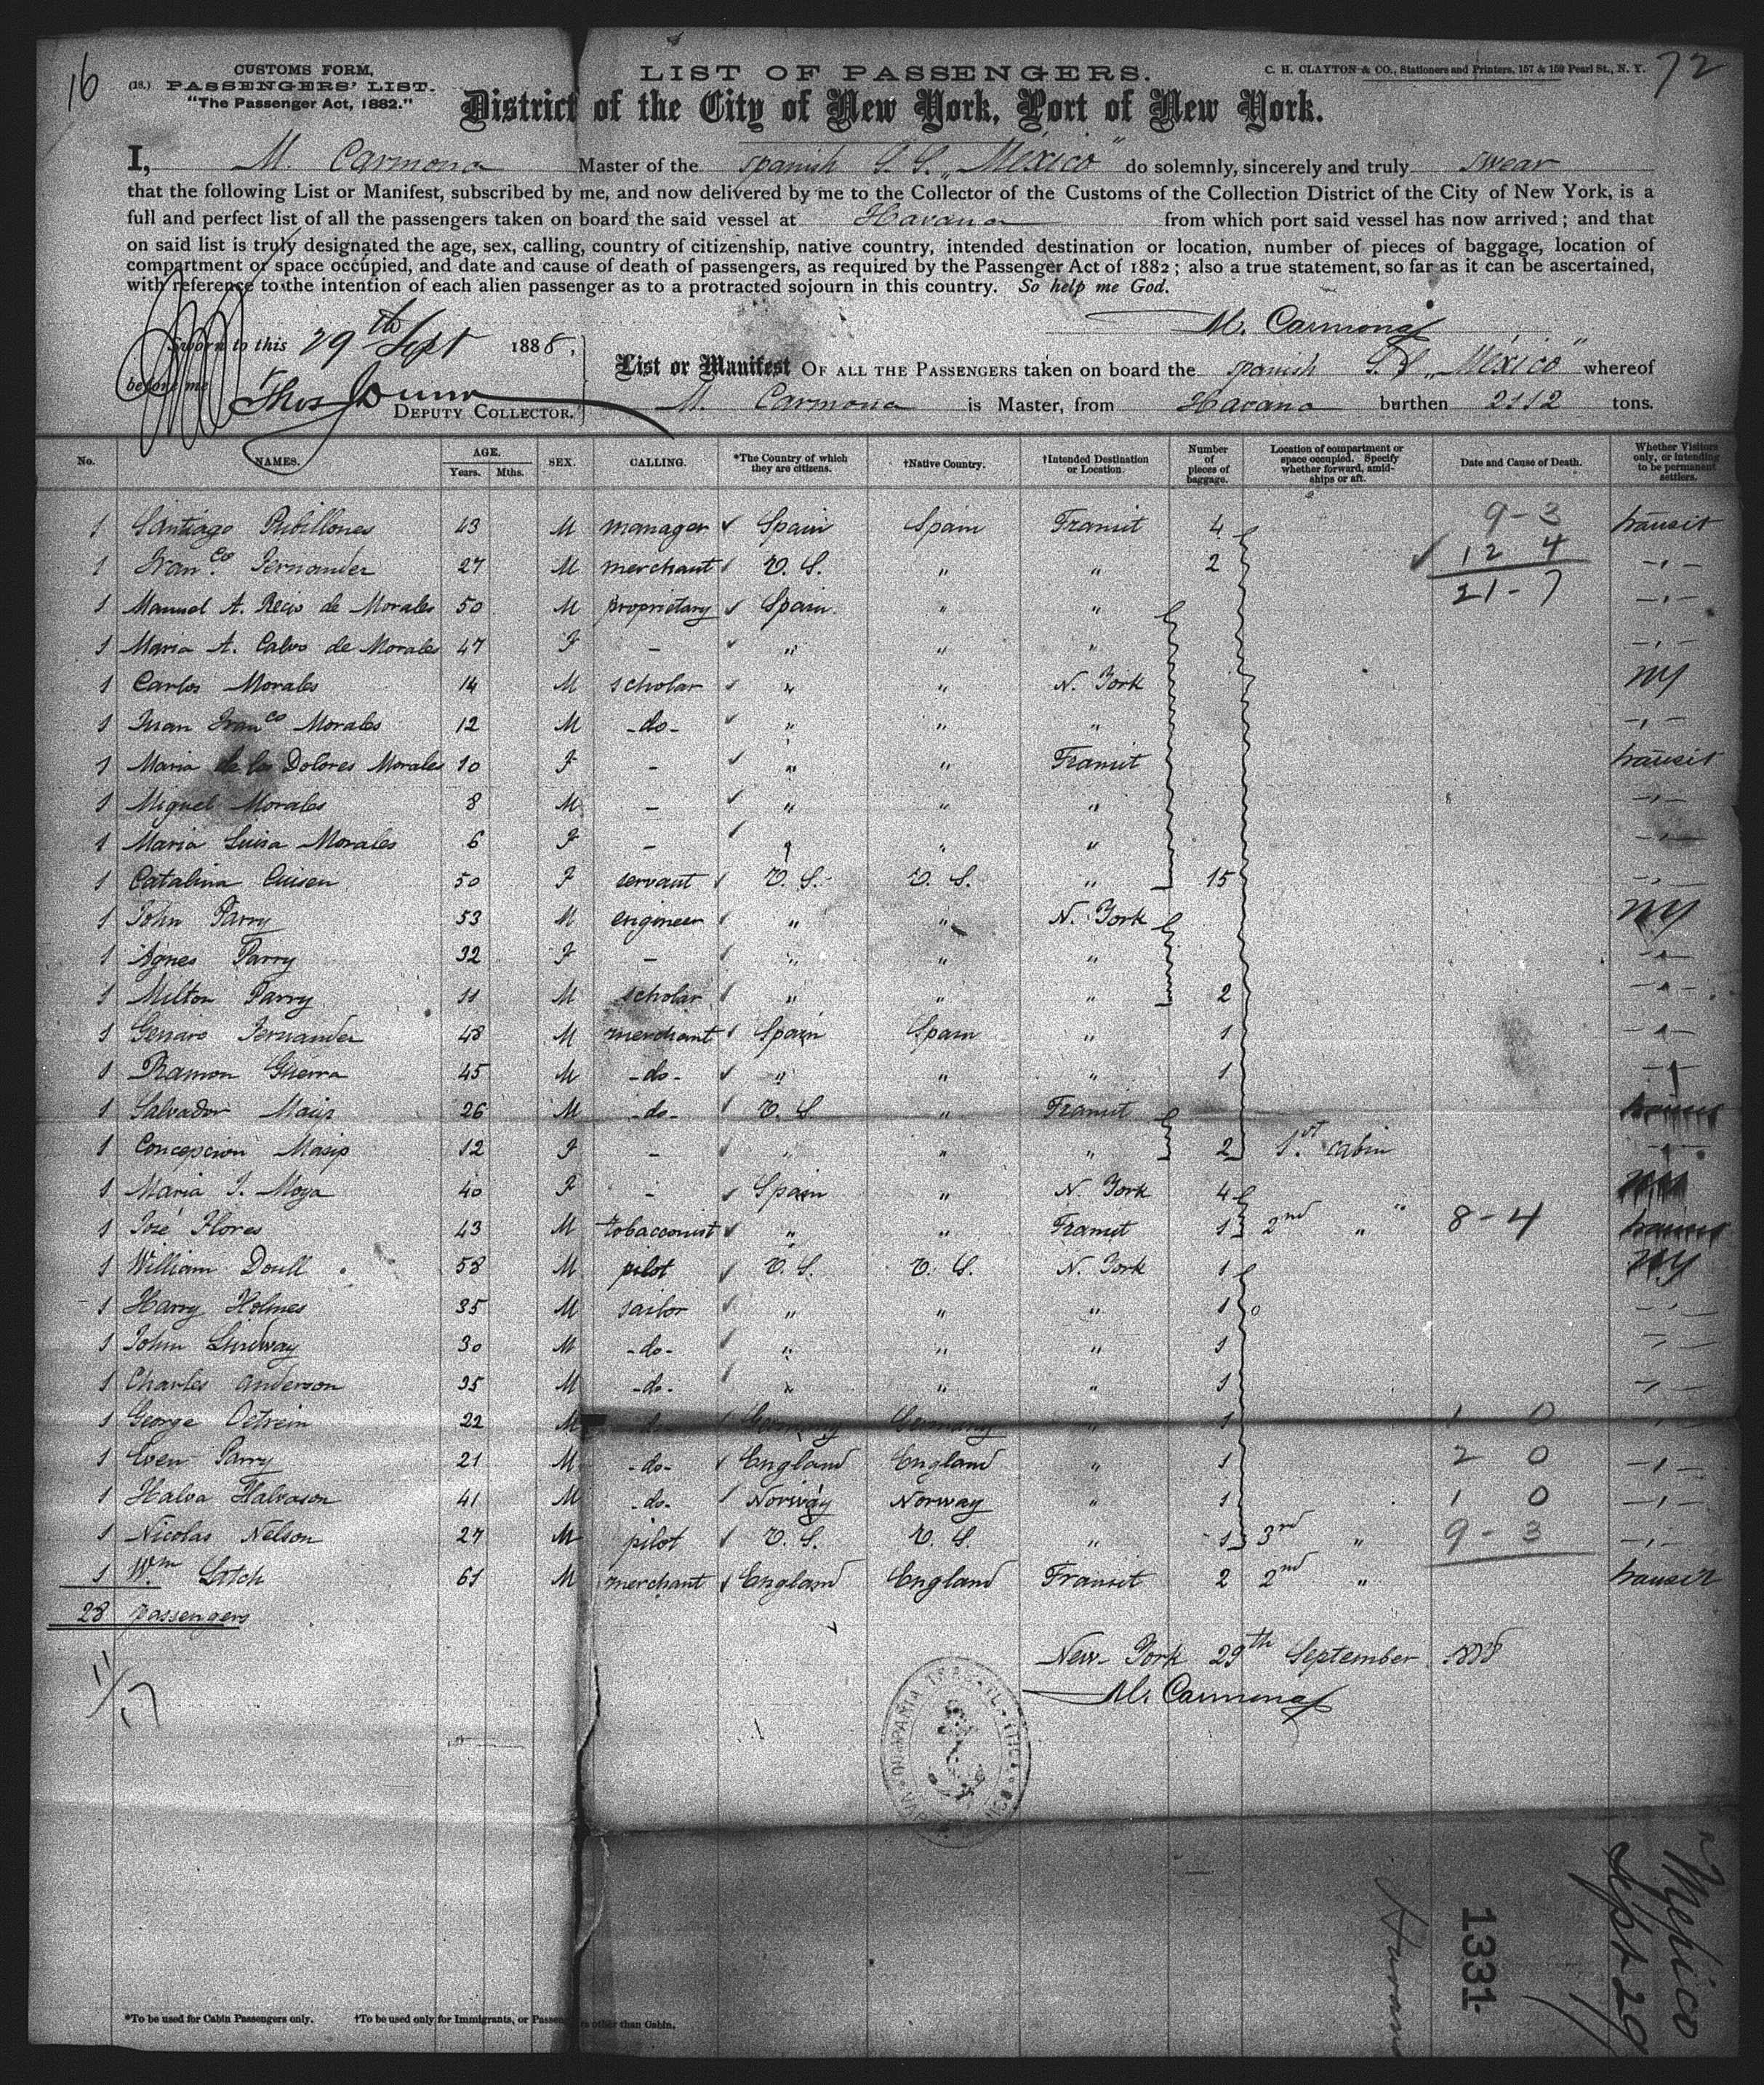 16
CUSTOMS FORM,
(18.) PASSENGERS' LIST.
"The Passenger Act, 1882."
LIST OF PASSENGERS.
C. H. CLAYTON & CO., Stationers and Printers, 157 & 159 Pearl St., N. Y.
72
District of the City of New York, Port of New York.
I, M. Carmona Master of the spanish S. S. "México" do solemnly, sincerely and truly swear
that the following List or Manifest, subscribed by me, and now delivered by me to the Collector of the Customs of the Collection District of the City of New York, is a
full and perfect list of all the passengers taken on board the said vessel at Havana from which port said vessel has now arrived; and that
on said list is truly designated the age, sex, calling, country of citizenship, native country, intended destination or location, number of pieces of baggage, location of
compartment or space occupied, and date and cause of death of passengers, as required by the Passenger Act of 1882; also a true statement, so far as it can be ascertained,
with reference to the intention of each alien passenger as to a protracted sojourn in this country. So help me God.
M. Carmona
Sworn to this 29th Sept 1888,
before me
Thos Dunn
DEPUTY COLLECTOR.
List or Manifest OF ALL THE PASSENGERS taken on board the spanish S. S. "México" whereof
M. Carmona is Master, from Havana burthen 2112 tons.
No. NAMES. AGE. Years. Mths. SEX. CALLING. *The Country of which they are citizens. †Native Country. †Intended Destination or Location. Number of pieces of baggage. Location of compartment or space occupied. Specify whether forward, amidships or aft. Date and Cause of Death. Whether Visitors only, or intending to be permanent settlers.
1 Santiago Pubillones 43 M manager Spain Spain Transit 4 9-3 transit
1 Franco. Fernander 27 M merchant U. S. " " 2 12 4 -"-
1 Manuel A. Recio de Morales 50 M proprietary Spain " " 21-7 -"-
1 Maria A. Calvo de Morales 47 F - " " " -"-
1 Carlos Morales 14 M scholar " " N. York NY
1 Juan Franco Morales 12 M -do- " " " -"-
1 Maria de los Dolores Morales 10 F - " " Transit transit
1 Miguel Morales 8 M - " " " -"-
1 Maria Luisa Morales 6 F - " " " -"-
1 Catalina Cuisen 50 F servant U. S. U. S. " 15 -"-
1 John Parry 53 M engineer " " N. York NY
1 Agnes Parry 32 F - " " " -"-
1 Milton Parry 11 M scholar " " " 2 -"-
1 Genaro Fernander 48 M merchant Spain Spain " 1 -"-
1 Ramon Guerra 45 M -do- " " " 1 -"-
1 Salvador Masip 26 M -do- U. S " Transit transit
1 Concepcion Masip 12 F - " " " 2 1st. cabin -"-
1 Maria J. Moya 40 F - Spain " N. York 4 "
1 José Flores 43 M tobacconist " " Transit 1 2nd " 8-4 transit
1 William Doull 58 M pilot U. S. U. S. N. York 1 NY
1 Harry Holmes 35 M sailor " " " 1 -"-
1 John Lindway 30 M -do- " " " 1 -"-
1 Charles Anderson 35 M -do- " " " 1 -"-
1 George Oetrein 22 M -do- Germany Germany " 1 1 0 -"-
1 Even Parry 21 M -do- England England " 1 2 0 -"-
1 Halva Halvason 41 M -do- Norway Norway " 1 1 0 -"-
1 Nicolas Nelson 27 M pilot U. S. U. S. " 1 3rd " 9-3 -"-
1 Wm Litch 61 M merchant England England Transit 2 2nd " transit
28 passengers
11/17
New-York 29th September 1888
M. Carmona
"Mexico
Sept 29
1331
Havana
*To be used for Cabin Passengers only. †To be used only for Immigrants, or Passengers other than Cabin.